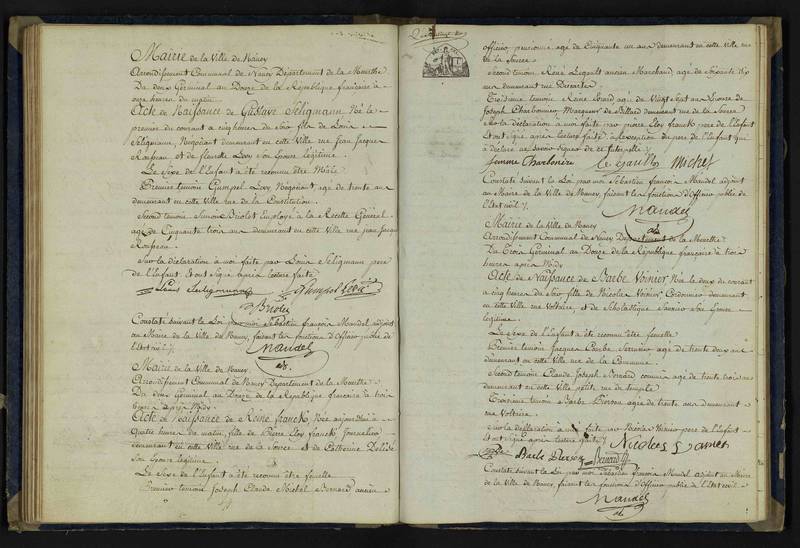 Mairie de la Ville de Nancy
Arrondissement Communal de Nancy Département de la Meurthe
Du deux Germinal an Douze de la République française à
onze heures du matin
Acte de Naissance de Gustave Seligmann Née le
premier du courant à cinq heures du soir fils de Louis
Seligmann, Négociant demeurant en cette Ville rue Jean Jacques
Rousseau et de fleurette Levy son Epouse légitime.
Le Sexe de l'Enfant a été reconnu être Mâle
Premier temoin Gumpel Levy Négociant, agé de trente ans
demeurant en cette Ville rue de la Constitution.
Second temoin Simon Briolet Employé à la Recette Général
agé de Cinquante trois ans demeurant en cette Ville rue Jean Jacques
Rousseau.
Sur la déclaration à moi faite par Louis Seligmann pere
de l'Enfant Et ont signé après lecture faite
Louis Seligmann
Briolet
Constaté suivant la Loi par moi Sébastien françois Mandel adjoint
au Maire de la Ville de Nancy, faisant les fonctions d'Officier public de
l'Etat civil
Mandel
adt.
Mairie de la Ville de Nancy
Arrondissement Communal de Nancy Département de la Meurthe
Du deux Germinal an Douze de la République française à trois
heures après Midy
Acte de Naissance de Reine franck, Née aujourd'hui à
quatre heures du matin, fille de Pierre Eloy franck Journalier
demeurant en cette Ville rue de la Source et de Catherine
Son Epouse légitime
Le Sexe de l'Enfant a été reconnu être femelle
Premier temoin Joseph Claude Michel Bernard ancien
officier pensionné agé de Cinquante un ans demeurant en cette Ville rue
de la Source
Second temoin, René Legault ancien Marchand agé de Soixante dix
ans demeurant rue
Troisieme temoin Reine agé de Vingt Sept ans Epouse de
Joseph Charbonnier Marqueur de Billard demeurant rue de la Source
Sur la déclaration à moi faite par pierre Eloy franck pere de l'Enfant
Et ont signé après lecture faite à l'exception du pere de l'Enfant qui
a déclaré ne savoir signer de ce interpellé
femme Charbonnier Le Gault Michel
Constaté suivant la Loi par moi Sébastien françois Mandel adjoint
au Maire de la Ville de Nancy, faisant les fonctions d'Officier public de
l'Etat civil
Mandel
adt.
Mairie de la Ville de Nancy
Arrondissement Communal de Nancy Département de la Meurthe
Du Trois Germinal an Douze de la République française à trois
heures après Midy
Acte de Naissance de Barbe Voinier Née le deux du courant
à cinq heures du Soir fille de Nicolas Voinier Cordonnier demeurant
en cette Ville rue Voltaire, et de Scholastique Son Epouse
légitime
Le Sexe de l'Enfant a été reconnu être femelle
Premier temoin Jacques Serrurier agé de trente deux ans
demeurant en cette Ville rue de la Commune
Second temoin Claude Joseph Bernard commis agé de trente trois ans
demeurant en cette Ville petite rue du temple
Troisieme temoin Barbe agée de trente ans demeurant
rue Voltaire.
Sur la déclaration à moi faite par Nicolas Voinier pere de l'Enfant
Et ont signé après lecture faite Nicolas
Barbe Bernard
Constaté suivant la Loi par moi Sébastien françois Mandel adjoint au Maire
de la Ville de Nancy, faisant les fonctions d'Officier public de l'Etat civil
Mandel
adt.